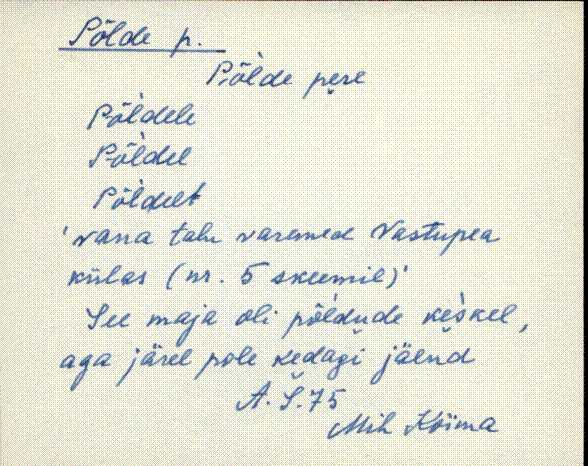 Põlde p.
Põlde pere
Põldele
Põldel
Põldelt
'vana talu varemed Vastupea
külas (nr. 5 skeemil)'
See maja oli põldude keskel,
aga järel pole kedagi jäend
A. Š. 75
Mih Kõima